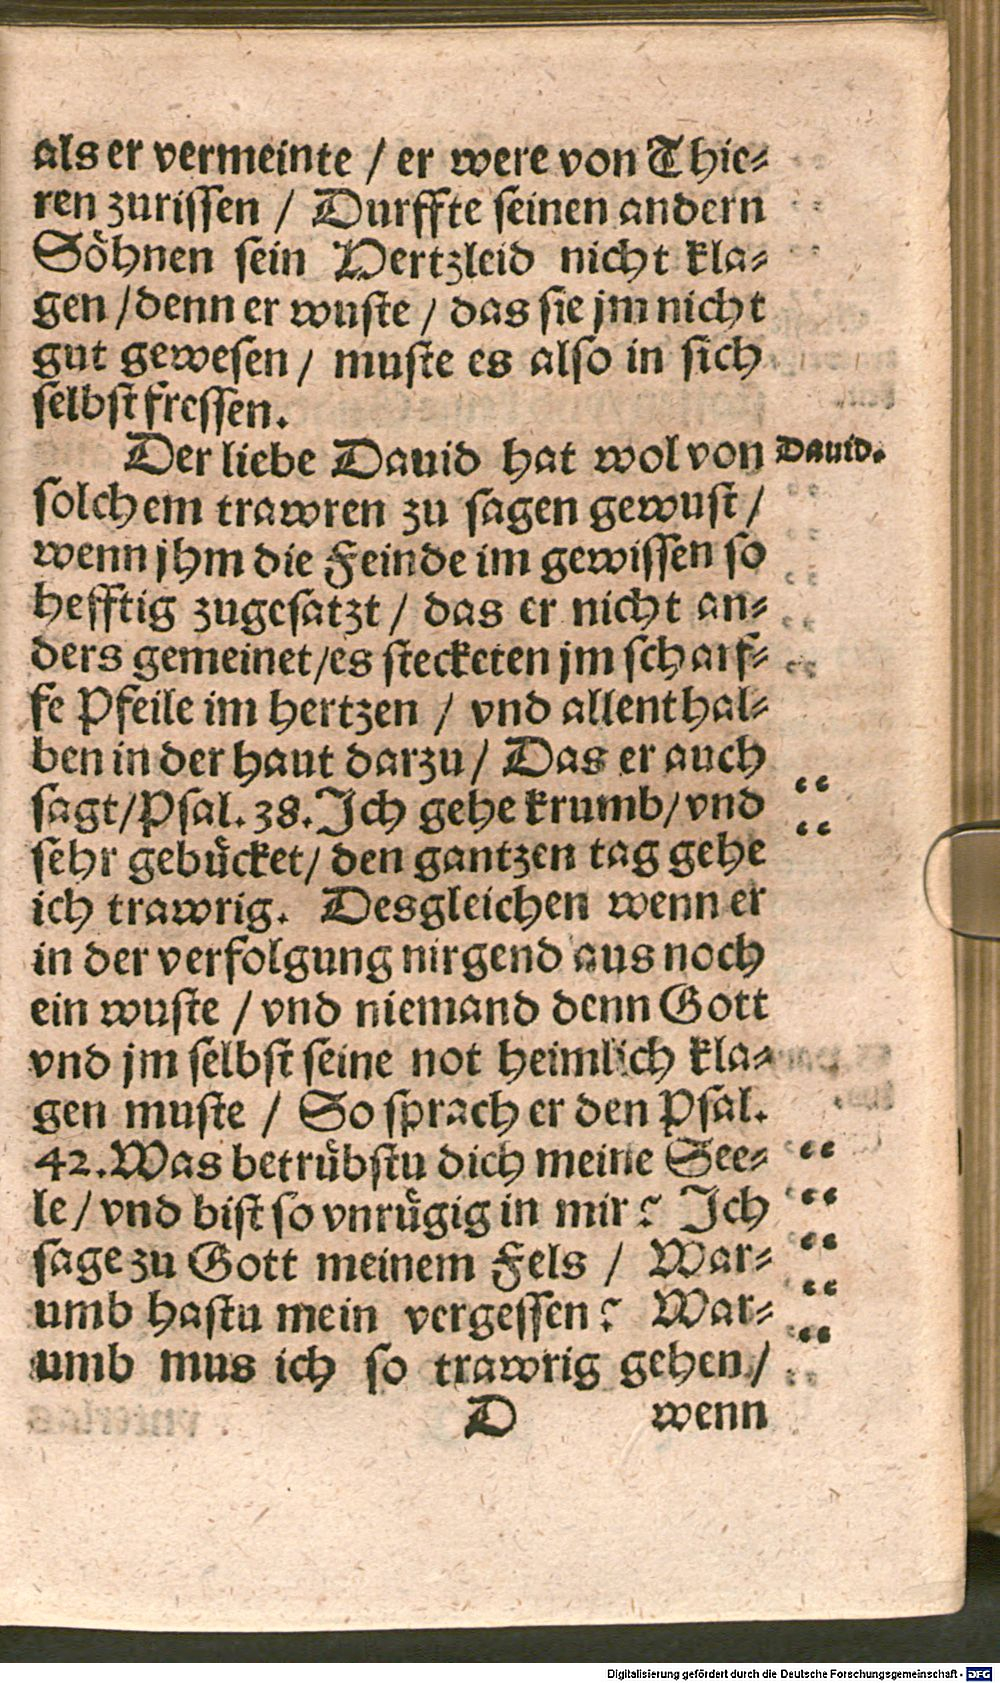 als er vermeinte / er were von Thie⸗
ren zurissen / Durffte seinen andern
Söhnen sein Hertzleid nicht kla⸗
gen / denn er wuste / das sie jm nicht
gut gewesen / muste es also in sich
selbst fressen.
Der liebe Dauid hat wol von
Dauid.
solchem trawren zu sagen gewust /
wenn jhm die Feinde im gewissen so
hefftig zugesatzt / das er nicht an⸗
ders gemeinet / es stecketen jm scharf⸗
fe Pfeile im hertzen / vnd allenthal⸗
ben in der haut darzu / Das er auch
sagt / Psal. 38. Ich gehe krumb / vnd
sehr gebücket / den gantzen tag gehe
ich trawrig. Desgleichen wenn er
in der verfolgung nirgend aus noch
ein wuste / vnd niemand denn Gott
vnd jm selbst seine not heimlich kla⸗
gen muste / So sprach er den Psal.
42. Was betrübstu dich meine See⸗
le / vnd bist so vnrügig in mir? Ich
sage zu Gott meinem Fels / War⸗
umb hastu mein vergessen? War⸗
umb mus ich so trawrig gehen /
D wenn
Digitalisierung gefördert durch die Deutsche Forschungsgemeinschaft - DFG